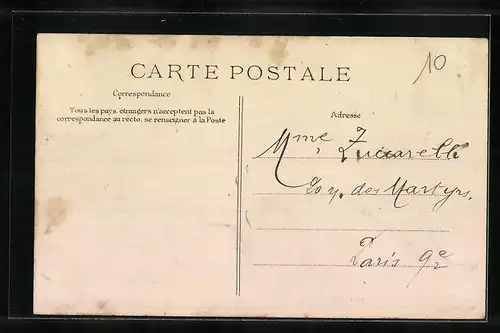 10
CARTE POSTALE
Correspondance
Tous les pays étrangers n'acceptent pas la
correspondance au recto, se renseigner à la Poste
Adresse
Mme Zuccarelli
des Martyrs.
Paris 9e